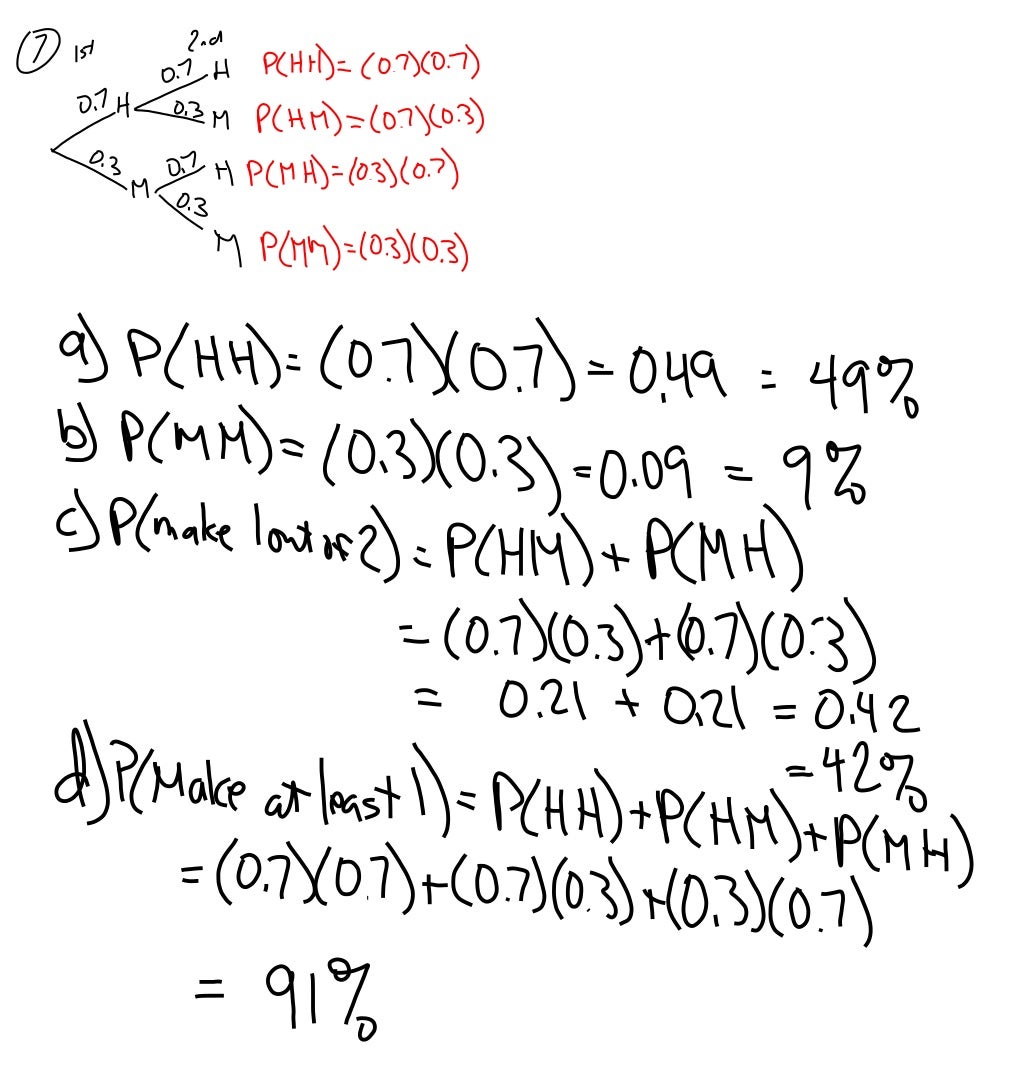 7 1st 2nd
0.7 H 0.7 H P(HH)=(0.7)(0.7)
0.3 M P(HM)=(0.7)(0.3)
0.3 M 0.7 H P(MH)=(0.3)(0.7)
0.3 M P(MM)=(0.3)(0.3)
a) P(HH)=(0.7)(0.7)=0.49 = 49%
b) P(MM)=(0.3)(0.3)=0.09 = 9%
c) P(make 1 out of 2)=P(HM)+P(MH)
=(0.7)(0.3)+(0.7)(0.3)
= 0.21 + 0.21 = 0.42
=42%
d) P(Make at least 1)=P(HH)+P(HM)+P(MH)
=(0.7)(0.7)+(0.7)(0.3)+(0.3)(0.7)
= 91%